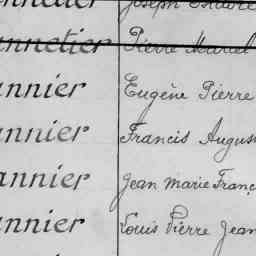 Joseph
annetier Pierre Marcel
annier Eugène Pierre
annier Francis Augus
annier Jean Marie Franç
annier Louis Pierre Jean